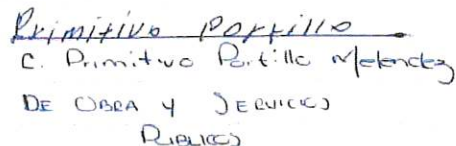 Primitivo Portillo
C. Primitivo Portillo Melendez
DE OBRA Y SERVICIOS
PUBLICOS